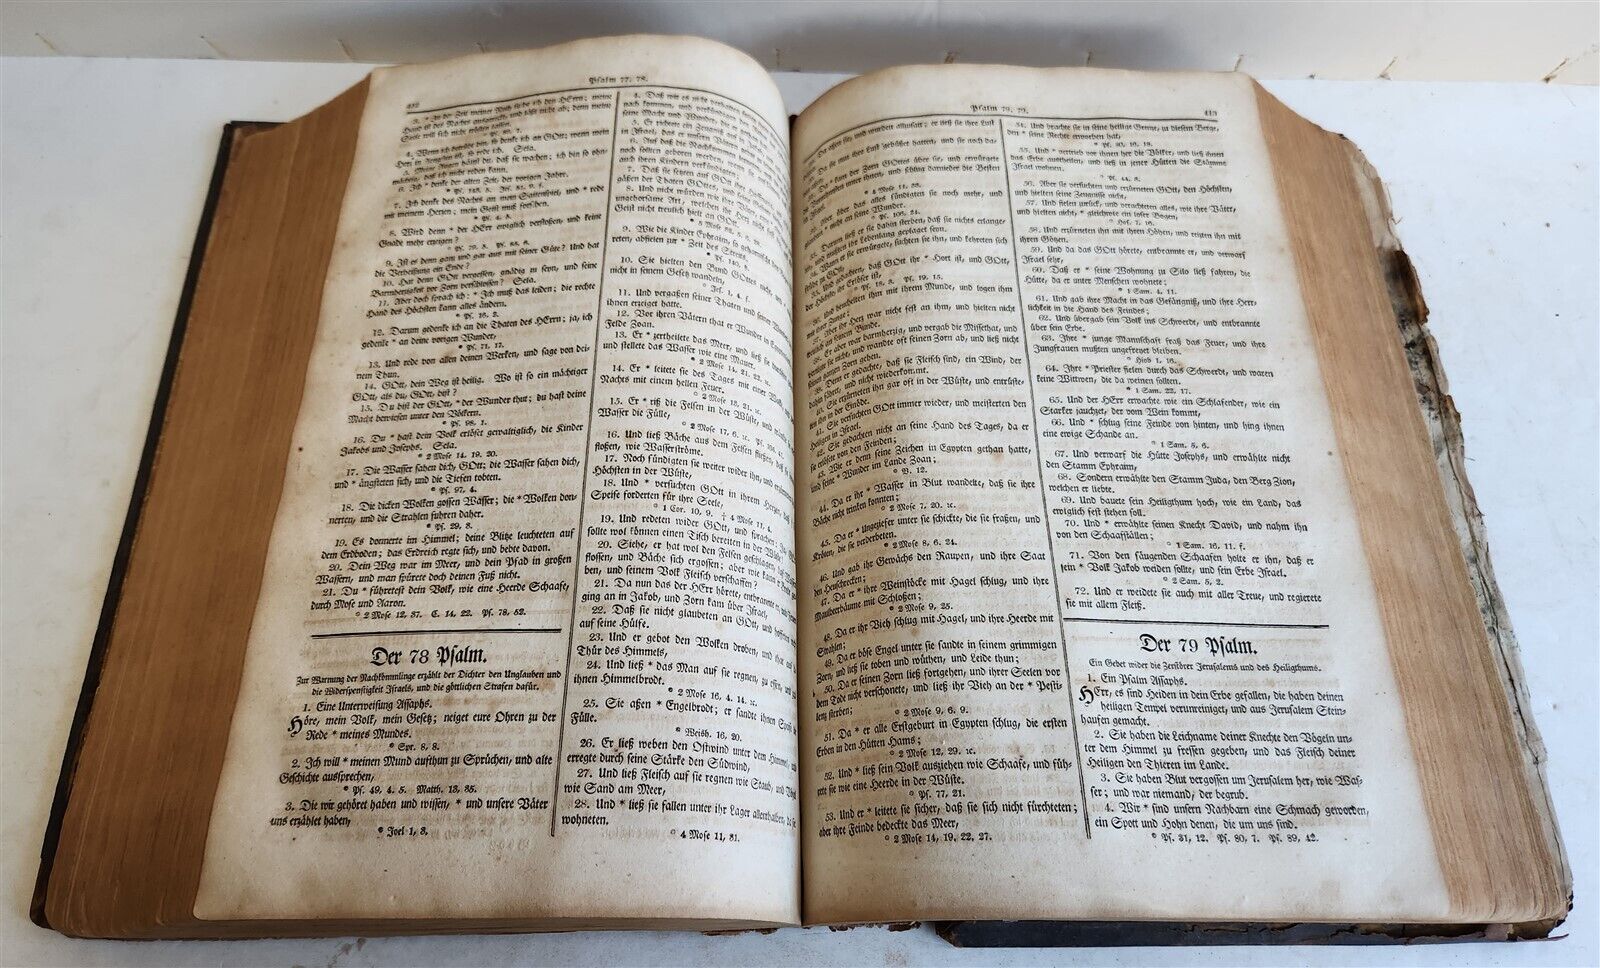 412
Psalm 77. 78.
3. * In der Zeit meiner Noth suche ich den HErrn; meine
Hand ist des Nachts ausgereckt, und läßt nicht ab; denn meine
Seele will sich nicht trösten lassen.
4. Wenn ich betrübt bin, so denke ich an GOtt; wenn mein
Herz in Aengsten ist, so rede ich. Sela.
5. Meine Augen hältst du, daß sie wachen; ich bin so ohn-
mächtig, daß ich nicht reden kann.
6. Ich * denke der alten Zeit, der vorigen Jahre.
7. Ich denke des Nachts an mein Saitenspiel, und * rede
mit meinem Herzen; mein Geist muß forschen.
* Ps. 4, 5.
8. Wird denn * der HErr ewiglich verstoßen, und keine
Gnade mehr erzeigen?
9. Ist es denn ganz und gar aus mit seiner Güte? Und hat
die Verheißung ein Ende?
10. Hat denn GOtt vergessen, gnädig zu seyn, und seine
Barmherzigkeit vor Zorn verschlossen? Sela.
11. Aber doch sprach ich: * Ich muß das leiden; die rechte
Hand des Höchsten kann alles ändern.
12. Darum gedenke ich an die Thaten des HErrn; ja, ich
gedenke * an deine vorigen Wunder,
* Ps. 71, 17.
13. Und rede von allen deinen Werken, und sage von dei-
nem Thun.
14. GOtt, dein Weg ist heilig. Wo ist so ein mächtiger
GOtt, als du, GOtt, bist?
15. Du bist der GOtt, * der Wunder thut; du hast deine
Macht bewiesen unter den Völkern.
* Ps. 98, 1.
16. Du * hast dein Volk erlöset gewaltiglich, die Kinder
Jakobs und Josephs. Sela.
* 2 Mose 14, 19. 20.
17. Die Wasser sahen dich, GOtt; die Wasser sahen dich,
und * ängsteten sich, und die Tiefen tobten.
* Ps. 97, 4.
18. Die dicken Wolken gossen Wasser; die * Wolken don-
nerten, und die Strahlen fuhren daher.
* Ps. 29, 3.
19. Es donnerte im Himmel; deine Blitze leuchteten auf
dem Erdboden; das Erdreich regte sich, und bebte davon.
20. Dein Weg war im Meer, und dein Pfad in großen
Wassern, und man spürete doch deinen Fuß nicht.
21. Du * führetest dein Volk, wie eine Heerde Schaafe,
durch Mose und Aaron.
* 2 Mose 12, 37. C. 14, 22. Ps. 78, 52.
Der 78 Psalm.
Zur Warnung der Nachkömmlinge erzählt der Dichter den Unglauben und
die Widerspenstigkeit Israels, und die göttlichen Strafen dafür.
1. Eine Unterweisung Assaphs.
Höre, mein Volk, mein Gesetz; neiget eure Ohren zu der
Rede * meines Mundes.
* Spr. 8, 8.
2. Ich will * meinen Mund aufthun zu Sprüchen, und alte
Geschichte aussprechen,
* Ps. 49, 4. 5. Matth. 13, 35.
3. Die wir gehöret haben und wissen, * und unsere Väter
uns erzählet haben,
* Joel 1, 3.
4. Daß wir es nicht verhalten
nach kommen, und verkündigten
seine Macht und Wunder
5. Er richtete ein Zeugniß
Israel, das er unsern Vätern
6. Auf daß die Nachkommen
noch sollten geboren werden,
auch ihren Kindern verkündigten
7. Daß sie setzten auf GOtt
gäßen der Thaten GOttes, und
8. Und nicht würden wie ihre
ungehorsame Art, welchen ihr Herz
Geist nicht treulich hielt an GOtt
9. Wie die Kinder Ephraim, so
reten, abfielen zur * Zeit des Streits.
10. Sie hielten den Bund GOttes
nicht in seinem Gesetz wandeln,
11. Und vergaßen seiner Thaten und seiner Wunder
ihnen erzeiget hatte.
12. Vor ihren Vätern that er Wunder in
Felde Zoan.
13. Er * zertheilete das Meer, und ließ sie
und stellete das Wasser wie eine Mauer.
* 2 Mose 14, 21. 22. ꝛc.
14. Er * leitete sie des Tages mit einer Wolke
Nachts mit einem hellen Feuer.
* 2 Mose 13, 21. ꝛc.
15. Er * riß die Felsen in der Wüste, und
Wasser die Fülle,
* 2 Mose 17, 6. ꝛc.
16. Und ließ Bäche aus dem Felsen fließen, daß sie
flossen, wie Wasserströme.
17. Noch sündigten sie weiter wider ihn, und
Höchsten in der Wüste,
18. Und * versuchten GOtt in ihrem Herzen,
Speise forderten für ihre Seele,
* 1 Cor. 10, 9. † 4 Mose 11, 4.
19. Und redeten wider GOtt, und sprachen:
sollte wol können einen Tisch bereiten in der Wüste?
20. Siehe, er hat wol den Felsen geschlagen,
flossen, und Bäche sich ergossen; aber wie kann er
ben, und seinem Volk Fleisch verschaffen?
21. Da nun das der HErr hörete, entbrannte er,
ging an in Jakob, und Zorn kam über Israel,
22. Daß sie nicht glaubeten an GOtt, und hofften
auf seine Hülfe.
23. Und er gebot den Wolken droben, und that auf
Thür des Himmels,
24. Und ließ * das Man auf sie regnen, zu essen, und gab
ihnen Himmelbrodt.
* 2 Mose 16, 4. 14. ꝛc.
25. Sie aßen * Engelbrodt; er sandte ihnen Speise
Fülle.
* Weish. 16, 20.
26. Er ließ weben den Ostwind unter dem Himmel,
erregte durch seine Stärke den Südwind,
27. Und ließ Fleisch auf sie regnen wie Staub, und Vögel
wie Sand am Meer,
28. Und * ließ sie fallen unter ihr Lager allenthalben, da sie
wohneten.
* 4 Mose 11, 31.
Psalm 78. 79.
413
Da aßen sie, und wurden allzusatt; er ließ sie ihre Lust
Da sie nun ihre Lust gebüßet hatten, und sie noch da-
Da * kam der Zorn GOttes über sie, und erwürgete
* 4 Mose 11, 33.
Aber über das alles sündigten sie noch mehr, und
glaubten * nicht an seine Wunder.
* Ps. 106, 24.
Darum ließ er sie dahin sterben, daß sie nichts erlange-
ten, und mußten ihr Lebenlang geplagt seyn.
Wenn er sie erwürgete, suchten sie ihn, und kehreten sich
Und gedachten, daß GOtt ihr * Hort ist, und GOtt,
der Höchste, ihr Erlöser ist,
* Ps. 18, 3. Ps. 19, 15.
36. Und heuchelten ihm mit ihrem Munde, und logen ihm
mit ihrer Zunge;
37. Aber ihr Herz war nicht fest an ihm, und hielten nicht
treulich an seinem Bunde.
38. Er aber war barmherzig, und vergab die Missethat, und
vertilgte sie nicht, und wandte oft seinen Zorn ab, und ließ nicht
seinen ganzen Zorn gehen.
39. Denn er gedachte, daß sie Fleisch sind, ein Wind, der
dahin fähret, und nicht wiederkommt.
40. Sie erzürneten ihn gar oft in der Wüste, und entrüste-
ten ihn in der Einöde.
41. Sie versuchten GOtt immer wieder, und meisterten den
Heiligen in Israel.
42. Sie gedachten nicht an seine Hand des Tages, da er
sie erlösete von den Feinden;
43. Wie er denn seine Zeichen in Egypten gethan hatte,
und seine * Wunder im Lande Zoan;
* V. 12.
44. Da er ihr * Wasser in Blut wandelte, daß sie ihre
Bäche nicht trinken konnten;
* 2 Mose 7, 20. ꝛc.
45. Da er * Ungeziefer unter sie schickte, die sie fraßen, und
Kröten, die sie verderbeten.
* 2 Mose 8, 6. 24.
46. Und gab ihr Gewächs den Raupen, und ihre Saat
den Heuschrecken;
47. Da er * ihre Weinstöcke mit Hagel schlug, und ihre
Maulbeerbäume mit Schloßen;
* 2 Mose 9, 25.
48. Da er ihr Vieh schlug mit Hagel, und ihre Heerde mit
Strahlen;
49. Da er böse Engel unter sie sandte in seinem grimmigen
Zorn, und ließ sie toben und wüthen, und Leide thun;
50. Da er seinen Zorn ließ fortgehen, und ihrer Seelen vor
dem Tode nicht verschonete, und ließ ihr Vieh an der * Pesti-
lenz sterben;
* 2 Mose 9, 6. 9.
51. Da * er alle Erstgeburt in Egypten schlug, die ersten
Erben in den Hütten Hams;
* 2 Mose 12, 29. ꝛc.
52. Und * ließ sein Volk ausziehen wie Schaafe, und füh-
rete sie wie eine Heerde in der Wüste.
* Ps. 77, 21.
53. Und er * leitete sie sicher, daß sie sich nicht fürchteten;
aber ihre Feinde bedeckte das Meer,
* 2 Mose 14, 19. 22. 27.
54. Und brachte sie in seine heilige Grenze, zu diesem Berge,
den * seine Rechte erworben hat,
55. Und * vertrieb vor ihnen her die Völker, und ließ ihnen
das Erbe austheilen, und ließ in jener Hütten die Stämme
Israel wohnen.
* Ps. 44, 3.
56. Aber sie versuchten und erzürneten GOtt, den Höchsten,
und hielten seine Zeugnisse nicht,
57. Und fielen zurück, und verachteten alles, wie ihre Väter,
und hielten nicht, * gleichwie ein loser Bogen,
* Hos. 7, 16.
58. Und erzürneten ihn mit ihren Höhen, und reizten ihn mit
ihren Götzen.
59. Und da das GOtt hörete, entbrannte er, und verwarf
Israel sehr,
60. Daß er * seine Wohnung zu Silo ließ fahren, die
Hütte, da er unter Menschen wohnete;
* 1 Sam. 4, 11.
61. Und gab ihre Macht in das Gefängniß, und ihre Herr-
lichkeit in die Hand des Feindes;
62. Und übergab sein Volk ins Schwerdt, und entbrannte
über sein Erbe.
63. Ihre * junge Mannschaft fraß das Feuer, und ihre
Jungfrauen mußten ungefreyet bleiben.
* Hiob 1, 16.
64. Ihre * Priester fielen durch das Schwerdt, und waren
keine Wittwen, die da weinen sollten.
* 1 Sam. 22, 17.
65. Und der HErr erwachte wie ein Schlafender, wie ein
Starker jauchzet, der vom Wein kommt,
66. Und * schlug seine Feinde von hinten, und hing ihnen
eine ewige Schande an.
* 1 Sam. 5, 6.
67. Und verwarf die Hütte Josephs, und erwählte nicht
den Stamm Ephraim,
68. Sondern erwählte den Stamm Juda, den Berg Zion,
welchen er liebte.
69. Und bauete sein Heiligthum hoch, wie ein Land, das
ewiglich fest stehen soll.
70. Und * erwählte seinen Knecht David, und nahm ihn
von den Schaafställen;
* 1 Sam. 16, 11. f.
71. Von den säugenden Schaafen holte er ihn, daß er
sein * Volk Jakob weiden sollte, und sein Erbe Israel.
* 2 Sam. 5, 2.
72. Und er weidete sie auch mit aller Treue, und regierete
sie mit allem Fleiß.
Der 79 Psalm.
Ein Gebet wider die Zerstörer Jerusalems und des Heiligthums.
1. Ein Psalm Assaphs.
HErr, es sind Heiden in dein Erbe gefallen, die haben deinen
heiligen Tempel verunreiniget, und aus Jerusalem Stein-
haufen gemacht.
2. Sie haben die Leichname deiner Knechte den Vögeln un-
ter dem Himmel zu fressen gegeben, und das Fleisch deiner
Heiligen den Thieren im Lande.
3. Sie haben Blut vergossen um Jerusalem her, wie Was-
ser; und war niemand, der begrub.
4. Wir * sind unsern Nachbarn eine Schmach geworden,
ein Spott und Hohn denen, die um uns sind.
* Ps. 31, 12. Ps. 80, 7. Ps. 89, 42.